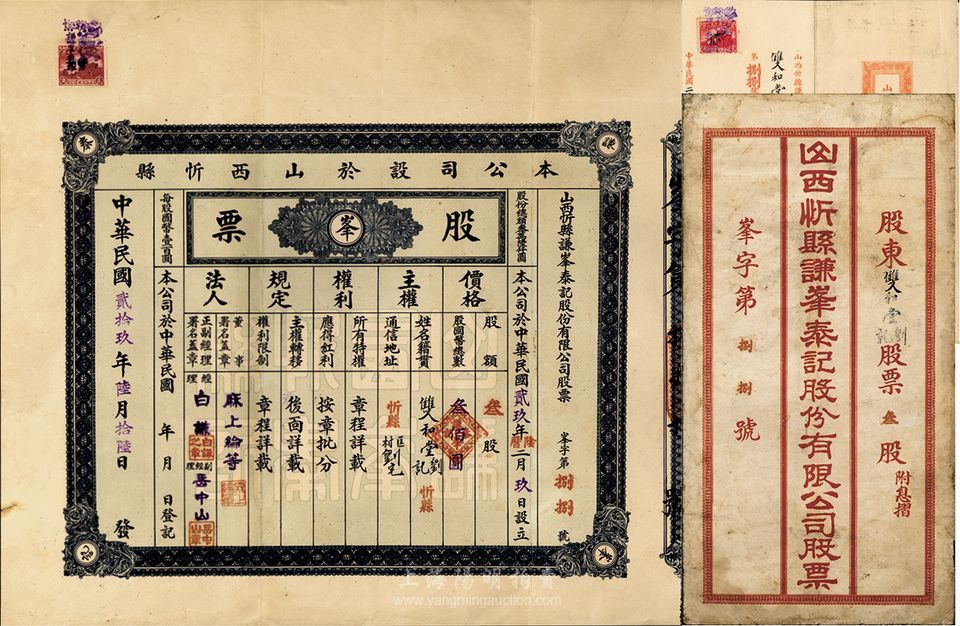 本公司設於山西忻縣
謙
泰
峯
記
山西忻縣謙峯泰記股份有限公司股票
峯字第捌捌號
本公司於中華民國貳玖年陰曆二月玖日設立
股票
峯
價格
主權
權利
規定
法人
股額
叁股
股國幣總數
叁佰圓
姓名籍貫
雙人和堂劉記
忻縣
通信地址
忻縣
所有特權
章程詳載
應得紅利
按章批分
主權轉移
後面詳載
權利限制
章程詳載
董事
署名蓋章
麻上綸等
正副經理
署名蓋章
經理
白謙
白謙之章
副經理
岳中山
岳中山章
每股國幣壹百圓
本公司於中華民國 年 月 日登記
中華民國貳拾玖年陸月拾陸日 發
山西忻縣
第捌捌
雙人和堂
中華民國二
山
股東 雙人和堂劉記 股票 叁 股 附息摺
山西忻縣謙峯泰記股份有限公司股票
峯字第 捌 捌 號
號
上海陽明拍賣
www.yangmingauction.com